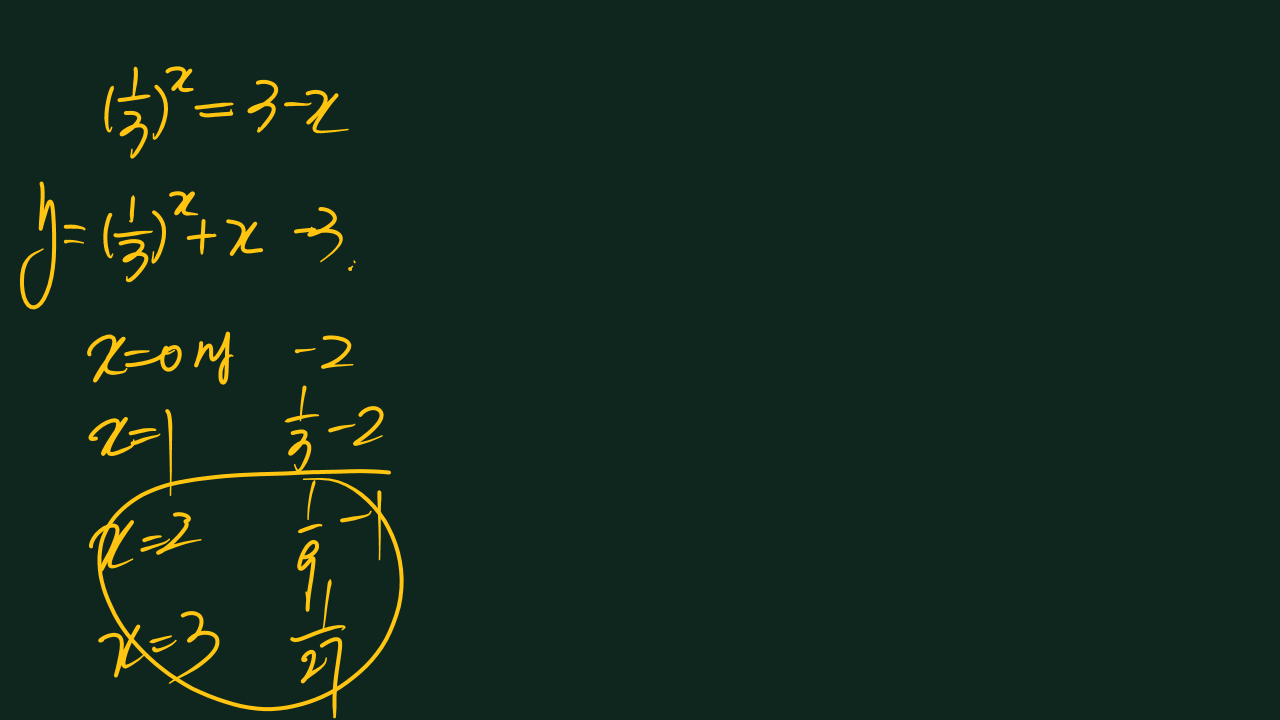 (1/3)^x = 3 - x
y = (1/3)^x + x - 3
x = 0 -2
x = 1 1/3 - 2
x = 2 1/9 - 1
x = 3 1/27